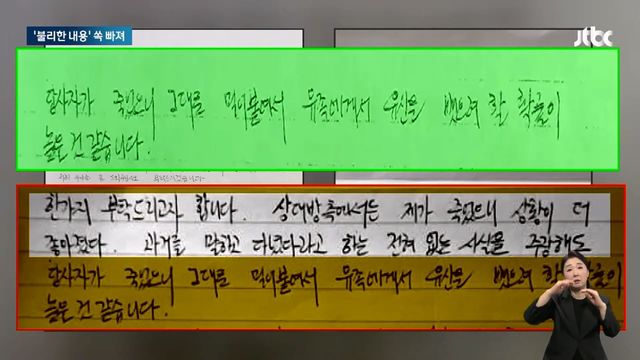 '불리한 내용' 쏙 빠져
jtbc
당사자가 죽었으니 그대로 밀어붙여서 유족에게서 유산을 뺏으려 할 확률이
높은 건 같습니다.
한가지 부탁드리고자 합니다. 상대방측에서는 제가 죽었으니 상황이 더
좋아졌다. 과거를 말하고 다녔다라고 하는 전혀 없는 사실을 주장해도
당사자가 죽었으니 그대로 밀어붙여서 유족에게서 유산을 뺏으려 할 확률이
높은 건 같습니다.